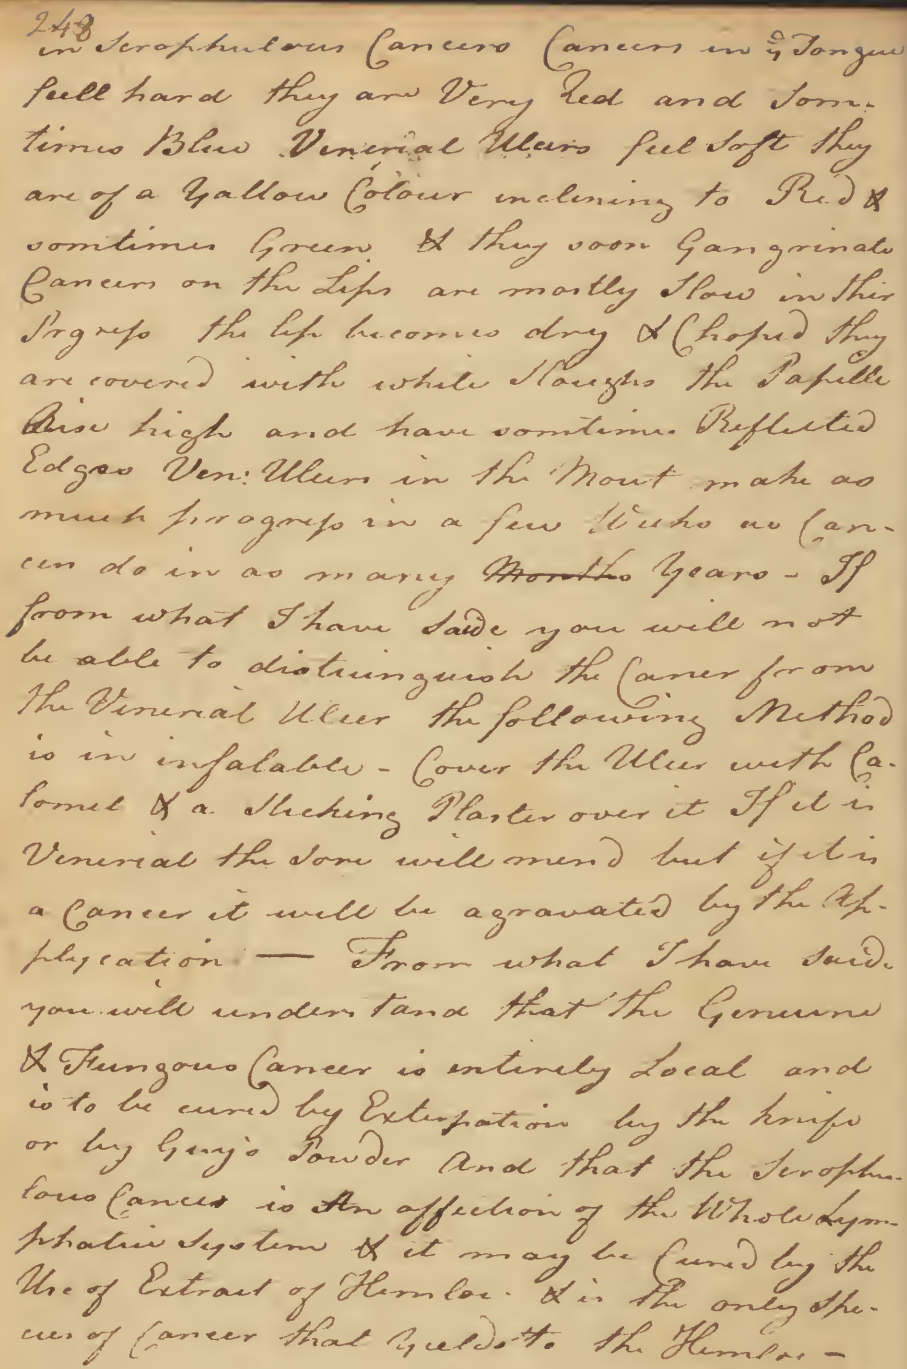 248
in Scrophulous Cancers Cancers in ye Tongue
feell hard they are Very Red and Som-
times Blue Venerial Ulcers feel Soft they
are of a Yallow Colour inclening to Red &
somtimes Green & they soon Gangrinate
Cancers on the Lips are mostly Slow in thir
Prgress the lip becomes dry & Choped they
are covered with while Sloughs the Papille
Rise high and have somtimes Reflected
Edges Ven: Ulcers in the Mout make as
much progress in a few Weeks as Can-
cers do in as many Months Years - If
from what I have Saide you will not
be able to distuinguish the Caner from
the Venerial Ulcer the following Method
is in infalable - Cover the Ulcer with Ca-
lomel & a Sticking Plaster over it If it is
Venerial the Sore will mend but if it is
a Cancer it will be agravated by the Ap-
plycation — From what I have Saide
you will understand that the Genuine
& Fungous Cancer is entirely Local and
is to be cured by Exterpation by the knife
or by Guy's Powder And that the Scrophu-
lous Cancer is An affection of the Whole Lym-
phatic System & it may be Cured by the
Use of Extract of Hemloc. & is the only Spe-
cies of Cancer that Yields to the Hemloc -